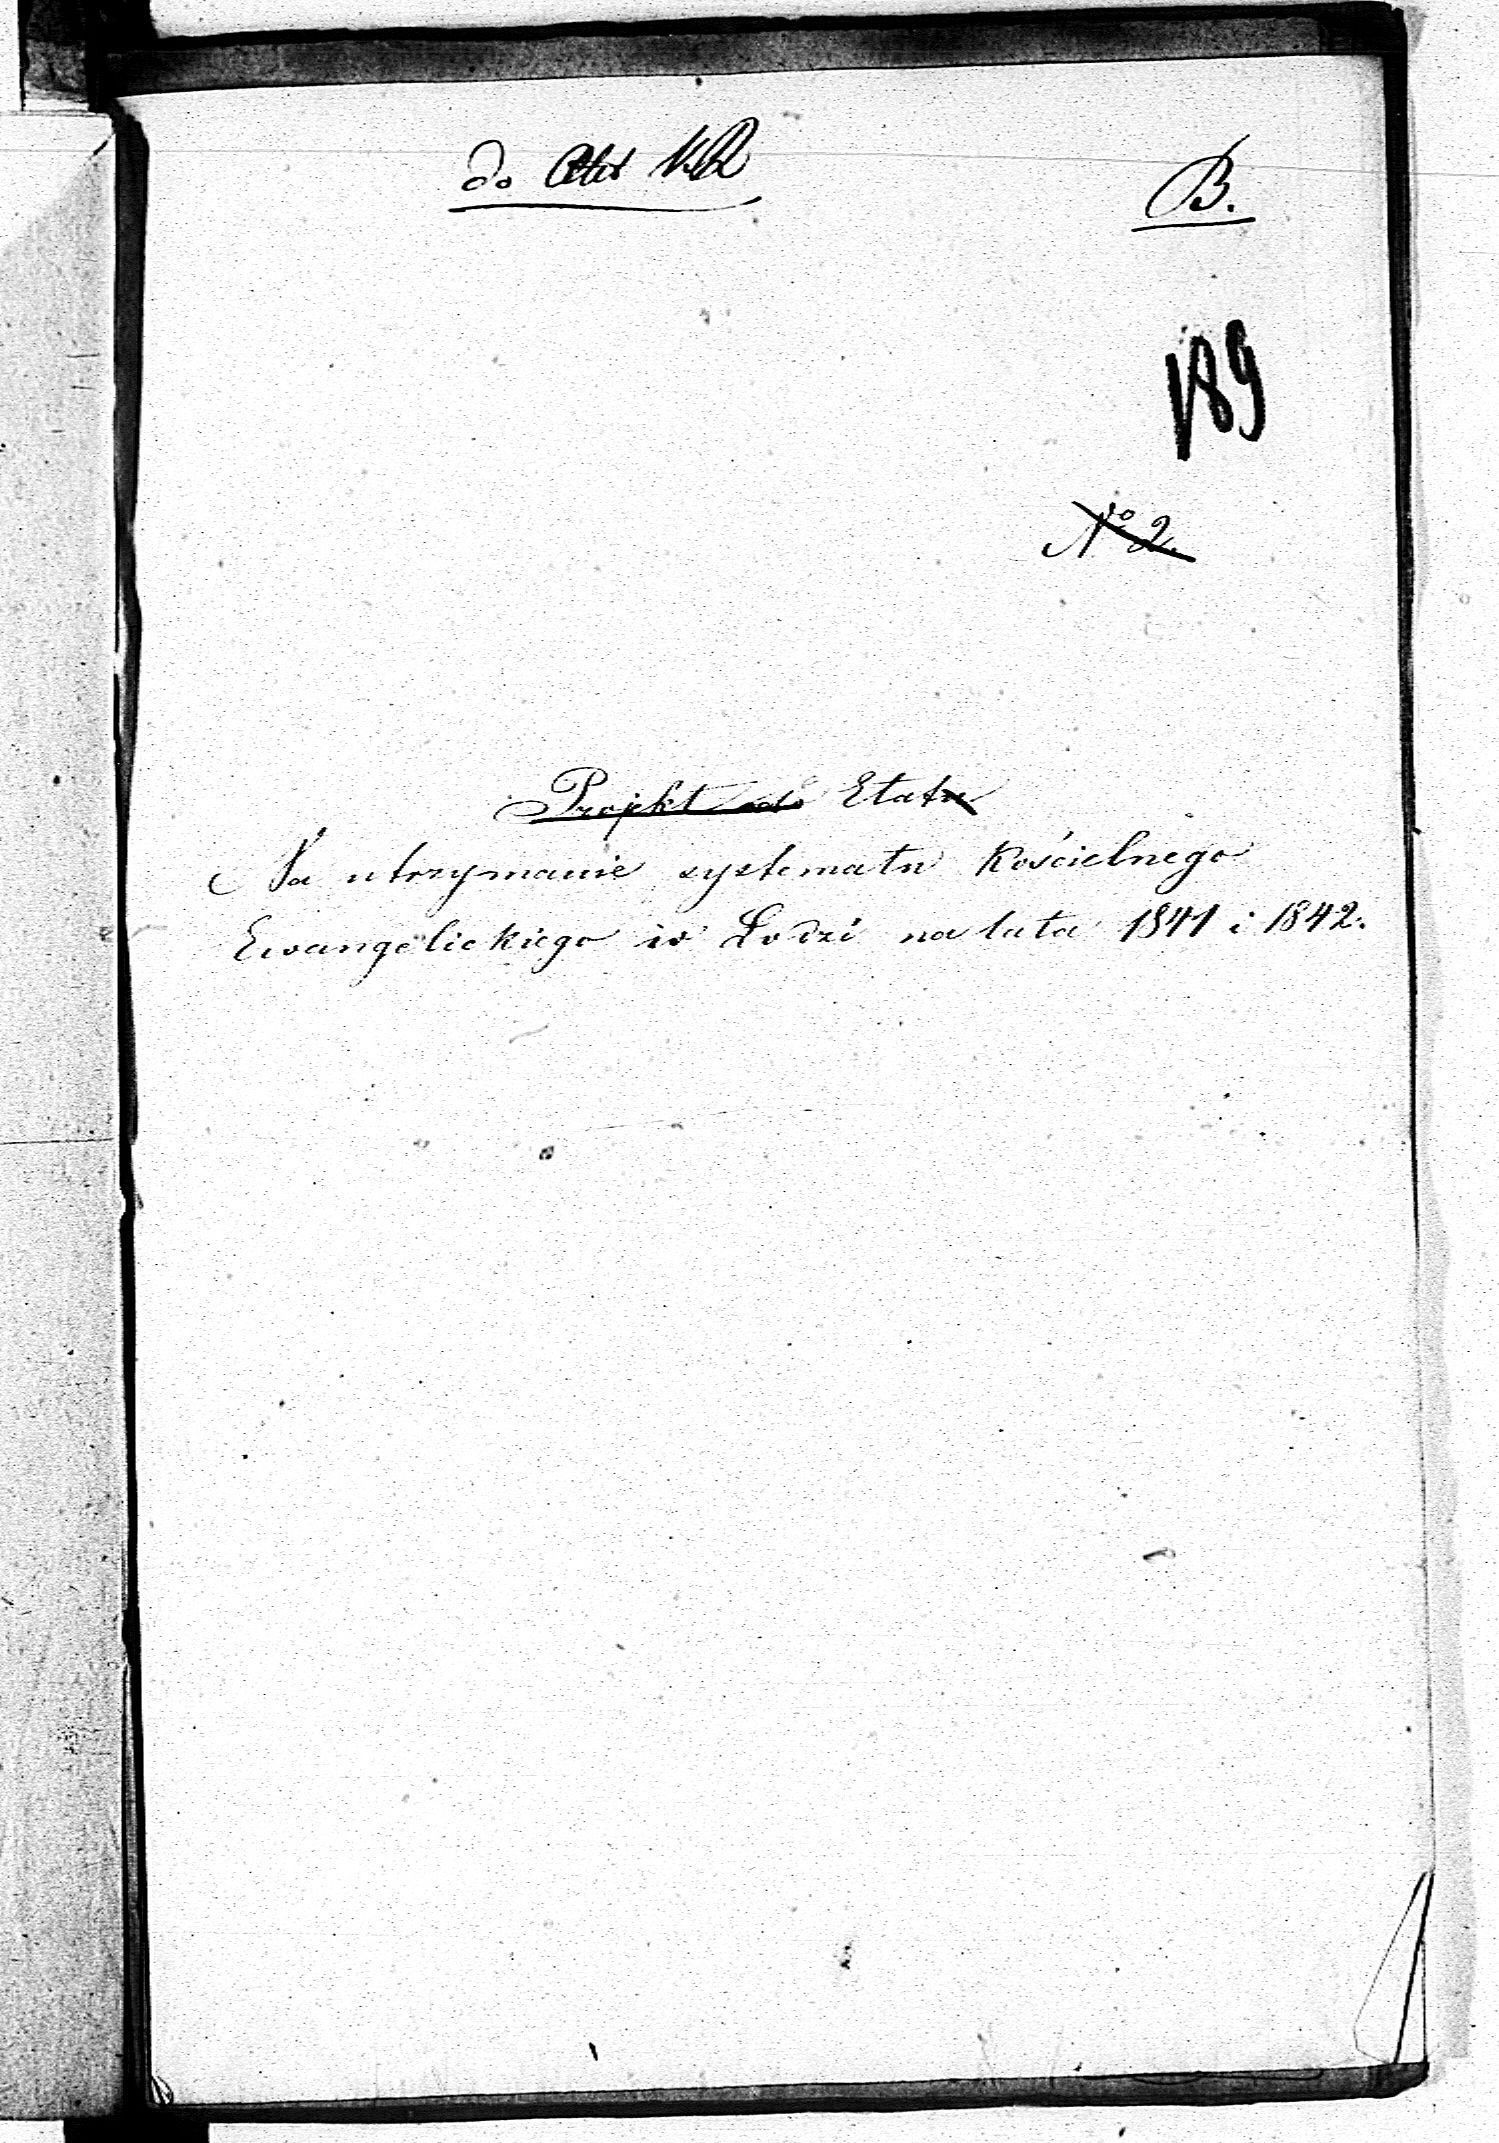 do Akt KR
B.
189
№ 2.
Projekt do Etatu
Na utrzymanie systematu Kościelnego
Ewangelickiego w Łodzi na lata 1841 i 1842.